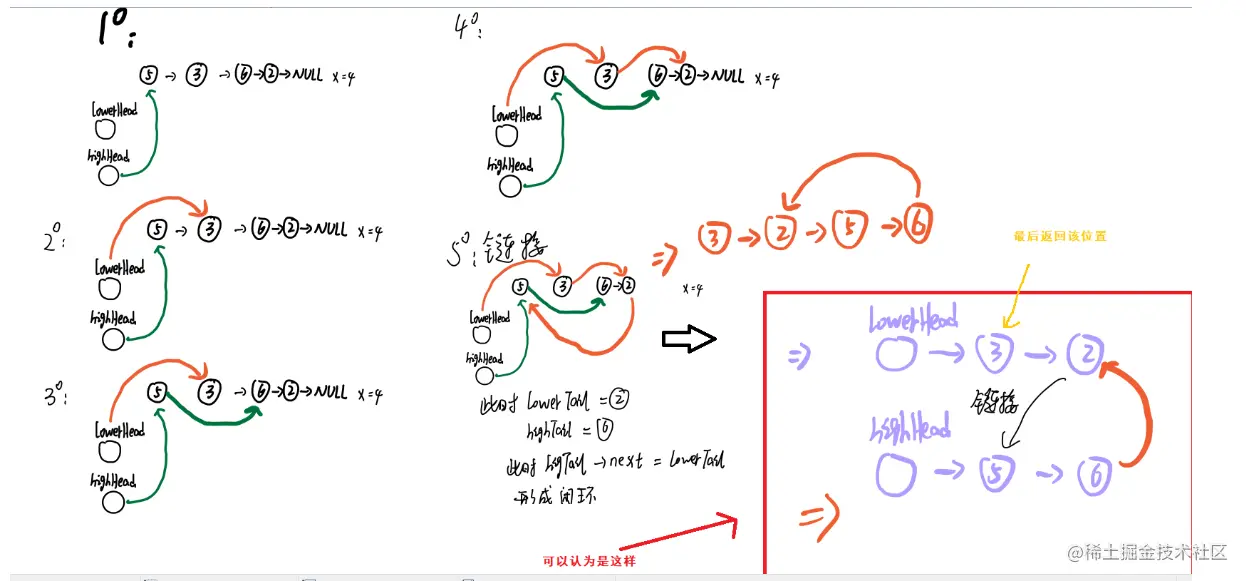 1°:
⑤ → ③ → ⑥ → ② → NULL x=4
lowerHead
highHead
2°:
⑤ → ③ → ⑥ → ② → NULL x=4
lowerHead
highHead
3°:
⑤ ③ → ⑥ → ② → NULL x=4
lowerHead
highHead
4°:
⑤ ③ ⑥ → ② → NULL x=4
lowerHead
highHead
5°: 链接
⑤ ③ ⑥ → ② x=4
lowerHead
highHead
此时 lowerTail = ②
highTail = ⑥
此时 higTail → next = lowerTail
形成闭环
⇒ ③ → ② → ⑤ → ⑥
最后返回该位置
⇒ lowerHead
→ ③ → ②
链接
highHead
→ ⑤ → ⑥
⇒
可以认为是这样
@稀土掘金技术社区